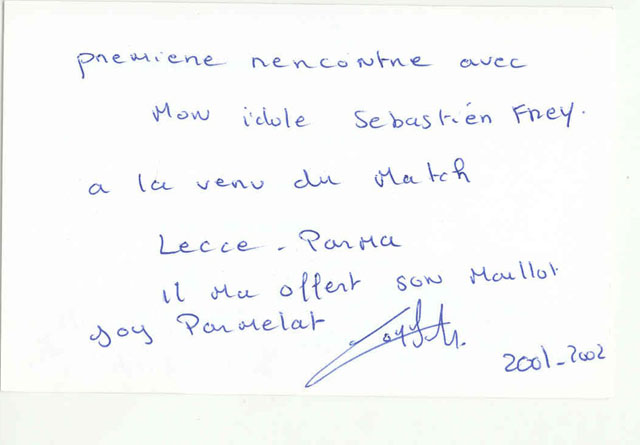 premiere rencontre avec
Mon idole Sebastién Frey.
a la venu du Match
Lecce - Parma
il ma offert son Maillot
Parmelat
2001-2002